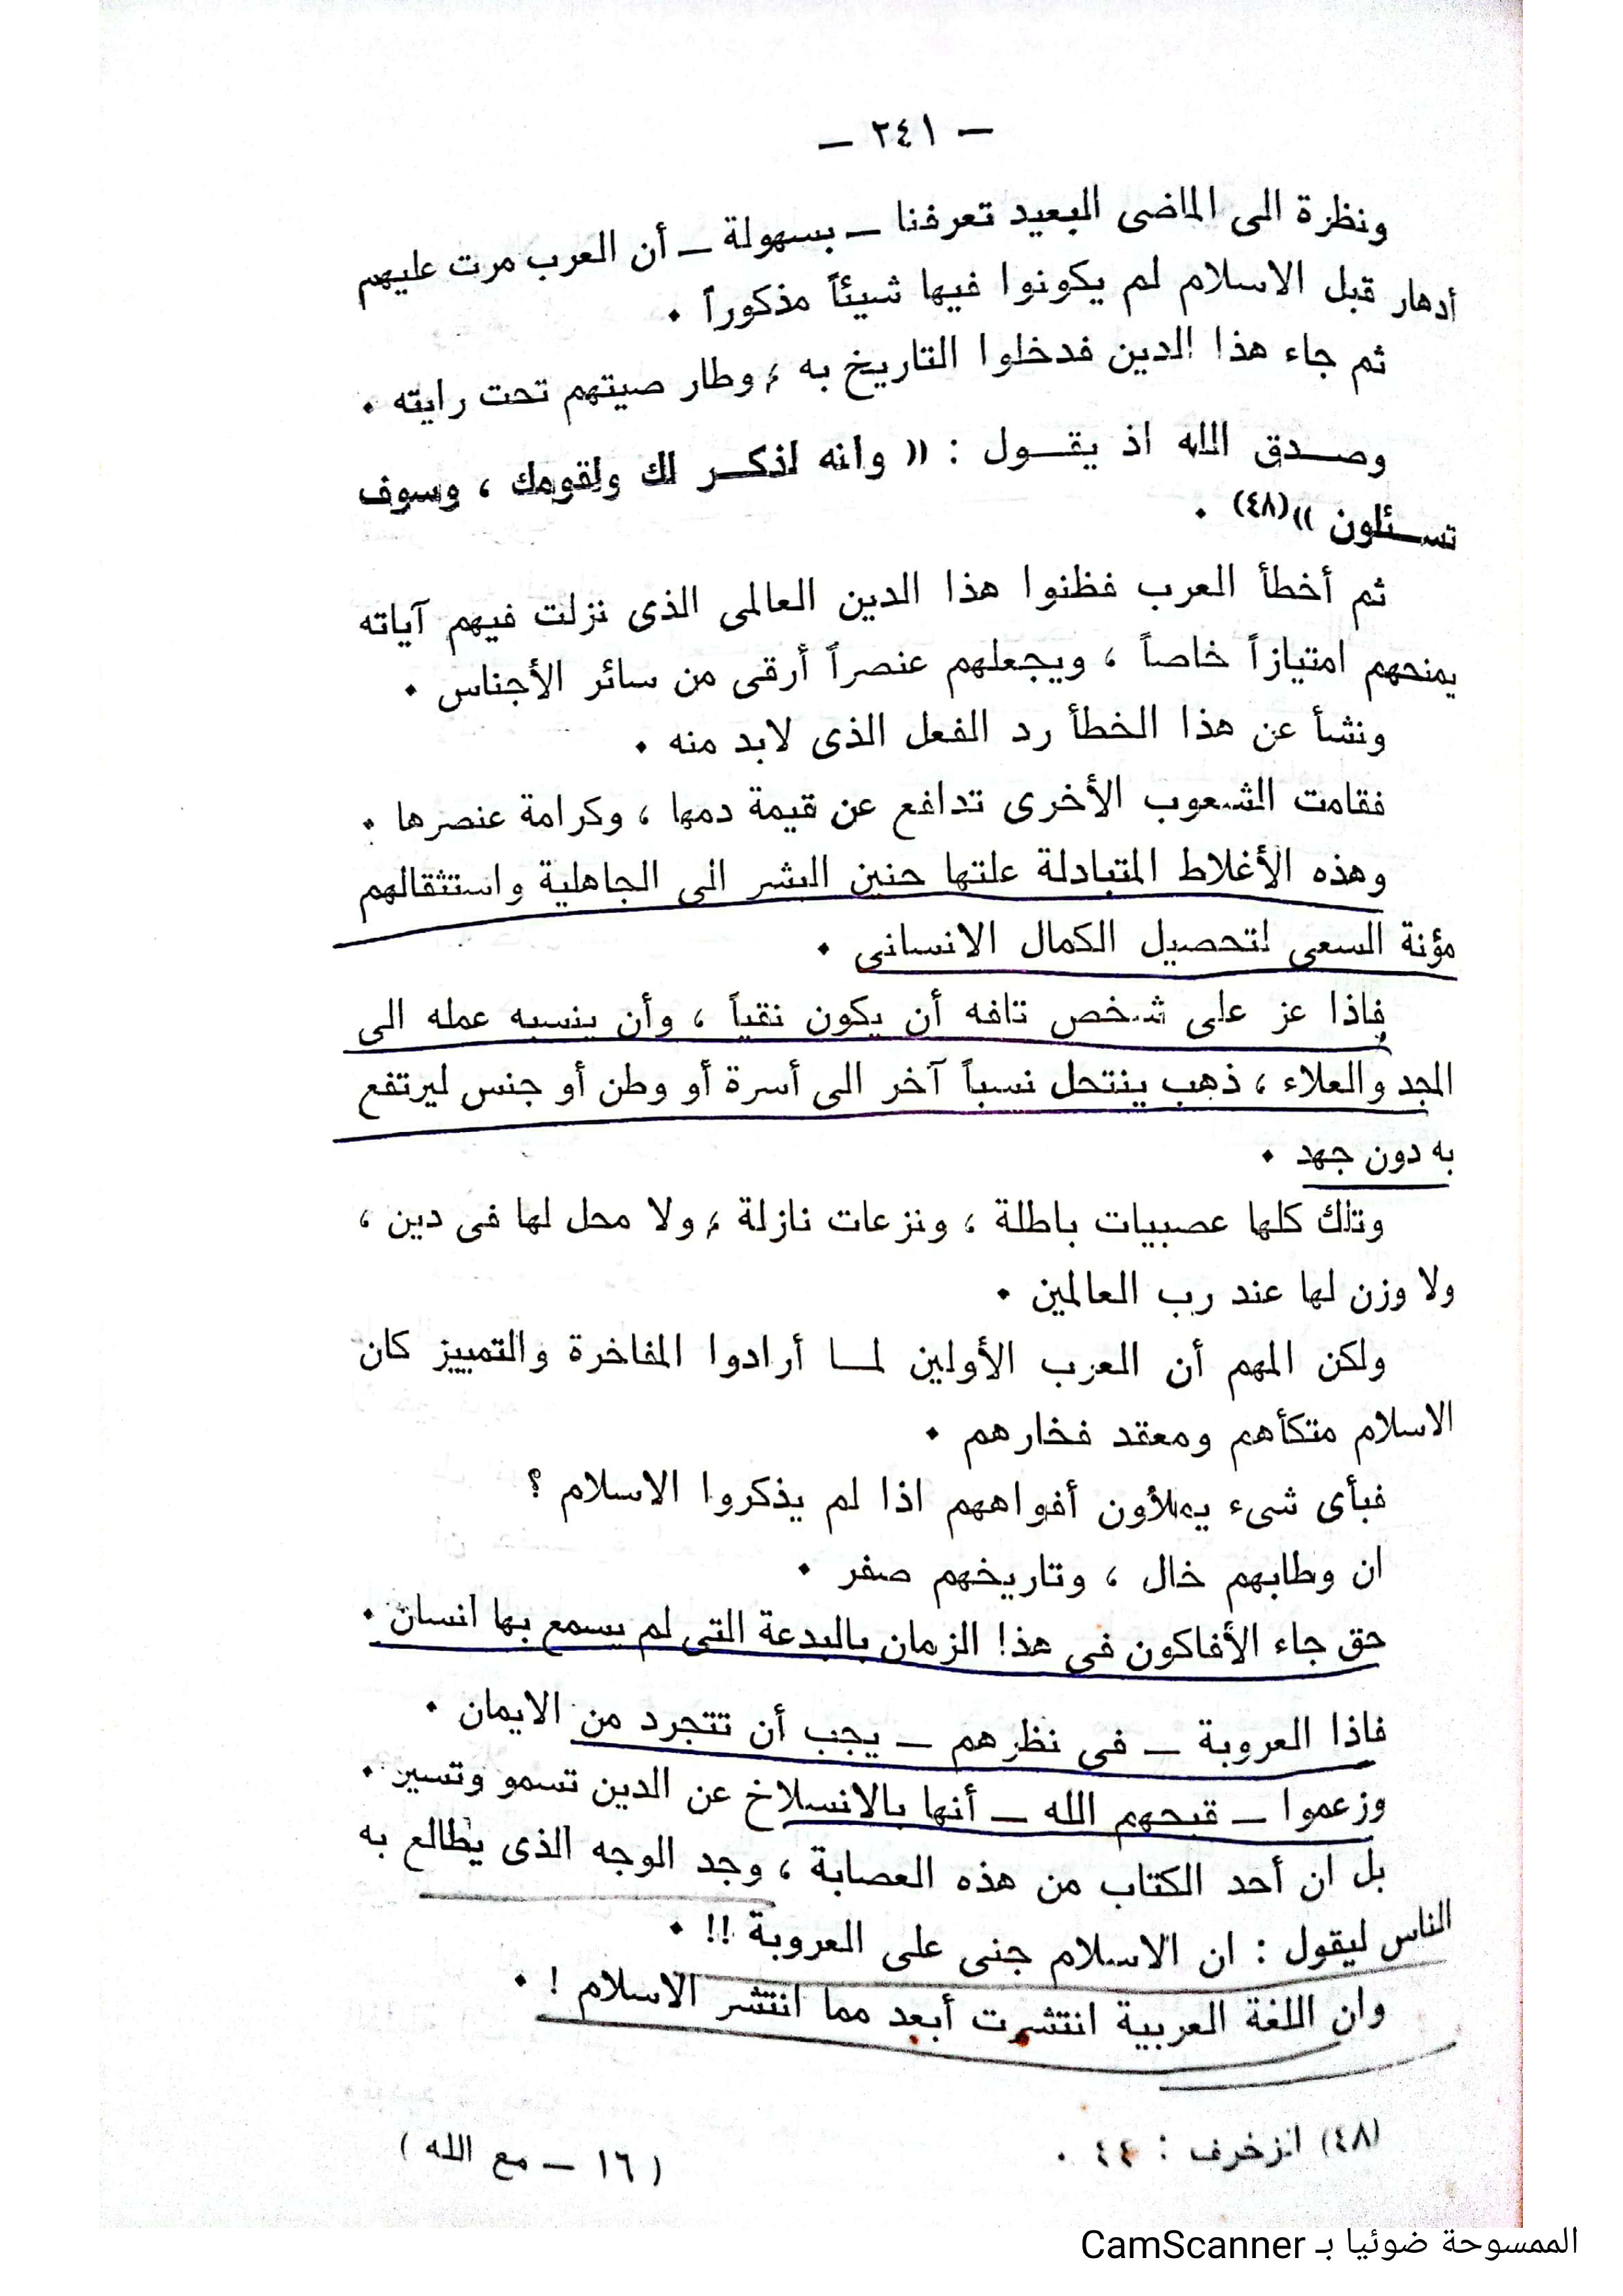 — ٢٤١ —
ونظرة الى الماضى البعيد تعرفنا — بسهولة — أن العرب مرت عليهم
أدهار قبل الاسلام لم يكونوا فيها شيئاً مذكوراً .
ثم جاء هذا الدين فدخلوا التاريخ به ، وطار صيتهم تحت رايته .
وصدق الله اذ يقول : (( وانه لذكر لك ولقومك ، وسوف
تسئلون ))(٤٨) .
ثم أخطأ العرب فظنوا هذا الدين العالمى الذى نزلت فيهم آياته
يمنحهم امتيازاً خاصاً ، ويجعلهم عنصراً أرقى من سائر الأجناس .
ونشأ عن هذا الخطأ رد الفعل الذى لابد منه .
فقامت الشعوب الأخرى تدافع عن قيمة دمها ، وكرامة عنصرها .
وهذه الأغلاط المتبادلة علتها حنين البشر الى الجاهلية واستثقالهم
مؤنة السعى لتحصيل الكمال الانسانى .
فاذا عز على شخص تافه أن يكون نقياً ، وأن ينسبه عمله الى
المجد والعلاء ، ذهب ينتحل نسباً آخر الى أسرة أو وطن أو جنس ليرتفع
به دون جهد .
وتلك كلها عصبيات باطلة ، ونزعات نازلة ، ولا محل لها فى دين ،
ولا وزن لها عند رب العالمين .
ولكن المهم أن العرب الأولين لما أرادوا المفاخرة والتمييز كان
الاسلام متكأهم ومعقد فخارهم .
فبأى شىء يملأون أفواههم اذا لم يذكروا الاسلام ؟
ان وطابهم خال ، وتاريخهم صفر .
حق جاء الأفاكون فى هذا الزمان بالبدعة التى لم يسمع بها انسان .
فاذا العروبة — فى نظرهم — يجب أن تتجرد من الايمان .
وزعموا — قبحهم الله — أنها بالانسلاخ عن الدين تسمو وتسير .
بل ان أحد الكتاب من هذه العصابة ، وجد الوجه الذى يطالع به
الناس ليقول : ان الاسلام جنى على العروبة !! .
وان اللغة العربية انتشرت أبعد مما انتشر الاسلام ! .
(٤٨) الزخرف : ٤٤ .
( ١٦ — مع الله )
الممسوحة ضوئيا بـ CamScanner